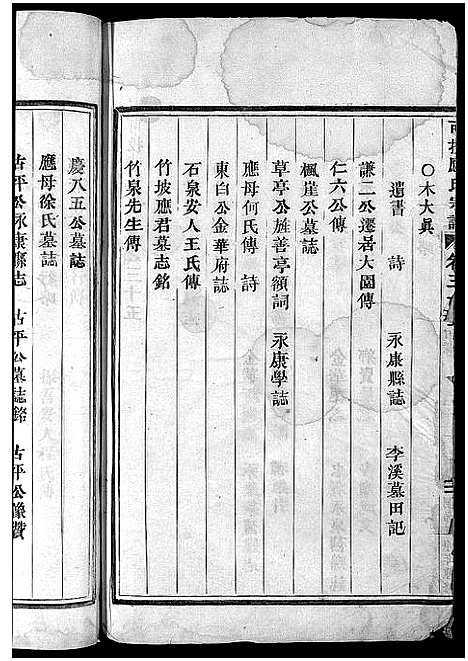 〇木大眞
遺書　詩　永康縣誌　李溪墓田記
謙二公遷居大園傳
仁六公傳
楓崖公墓誌
草亭公旌善亭額詞　永康學誌
應母何氏傳　詩
東白公金華府誌
石泉安人王氏傳
竹坡應君墓志銘
竹泉先生傳
慶八五公墓誌
應母徐氏墓誌
古平公永康縣志　古平公墓誌銘　古平公像贊